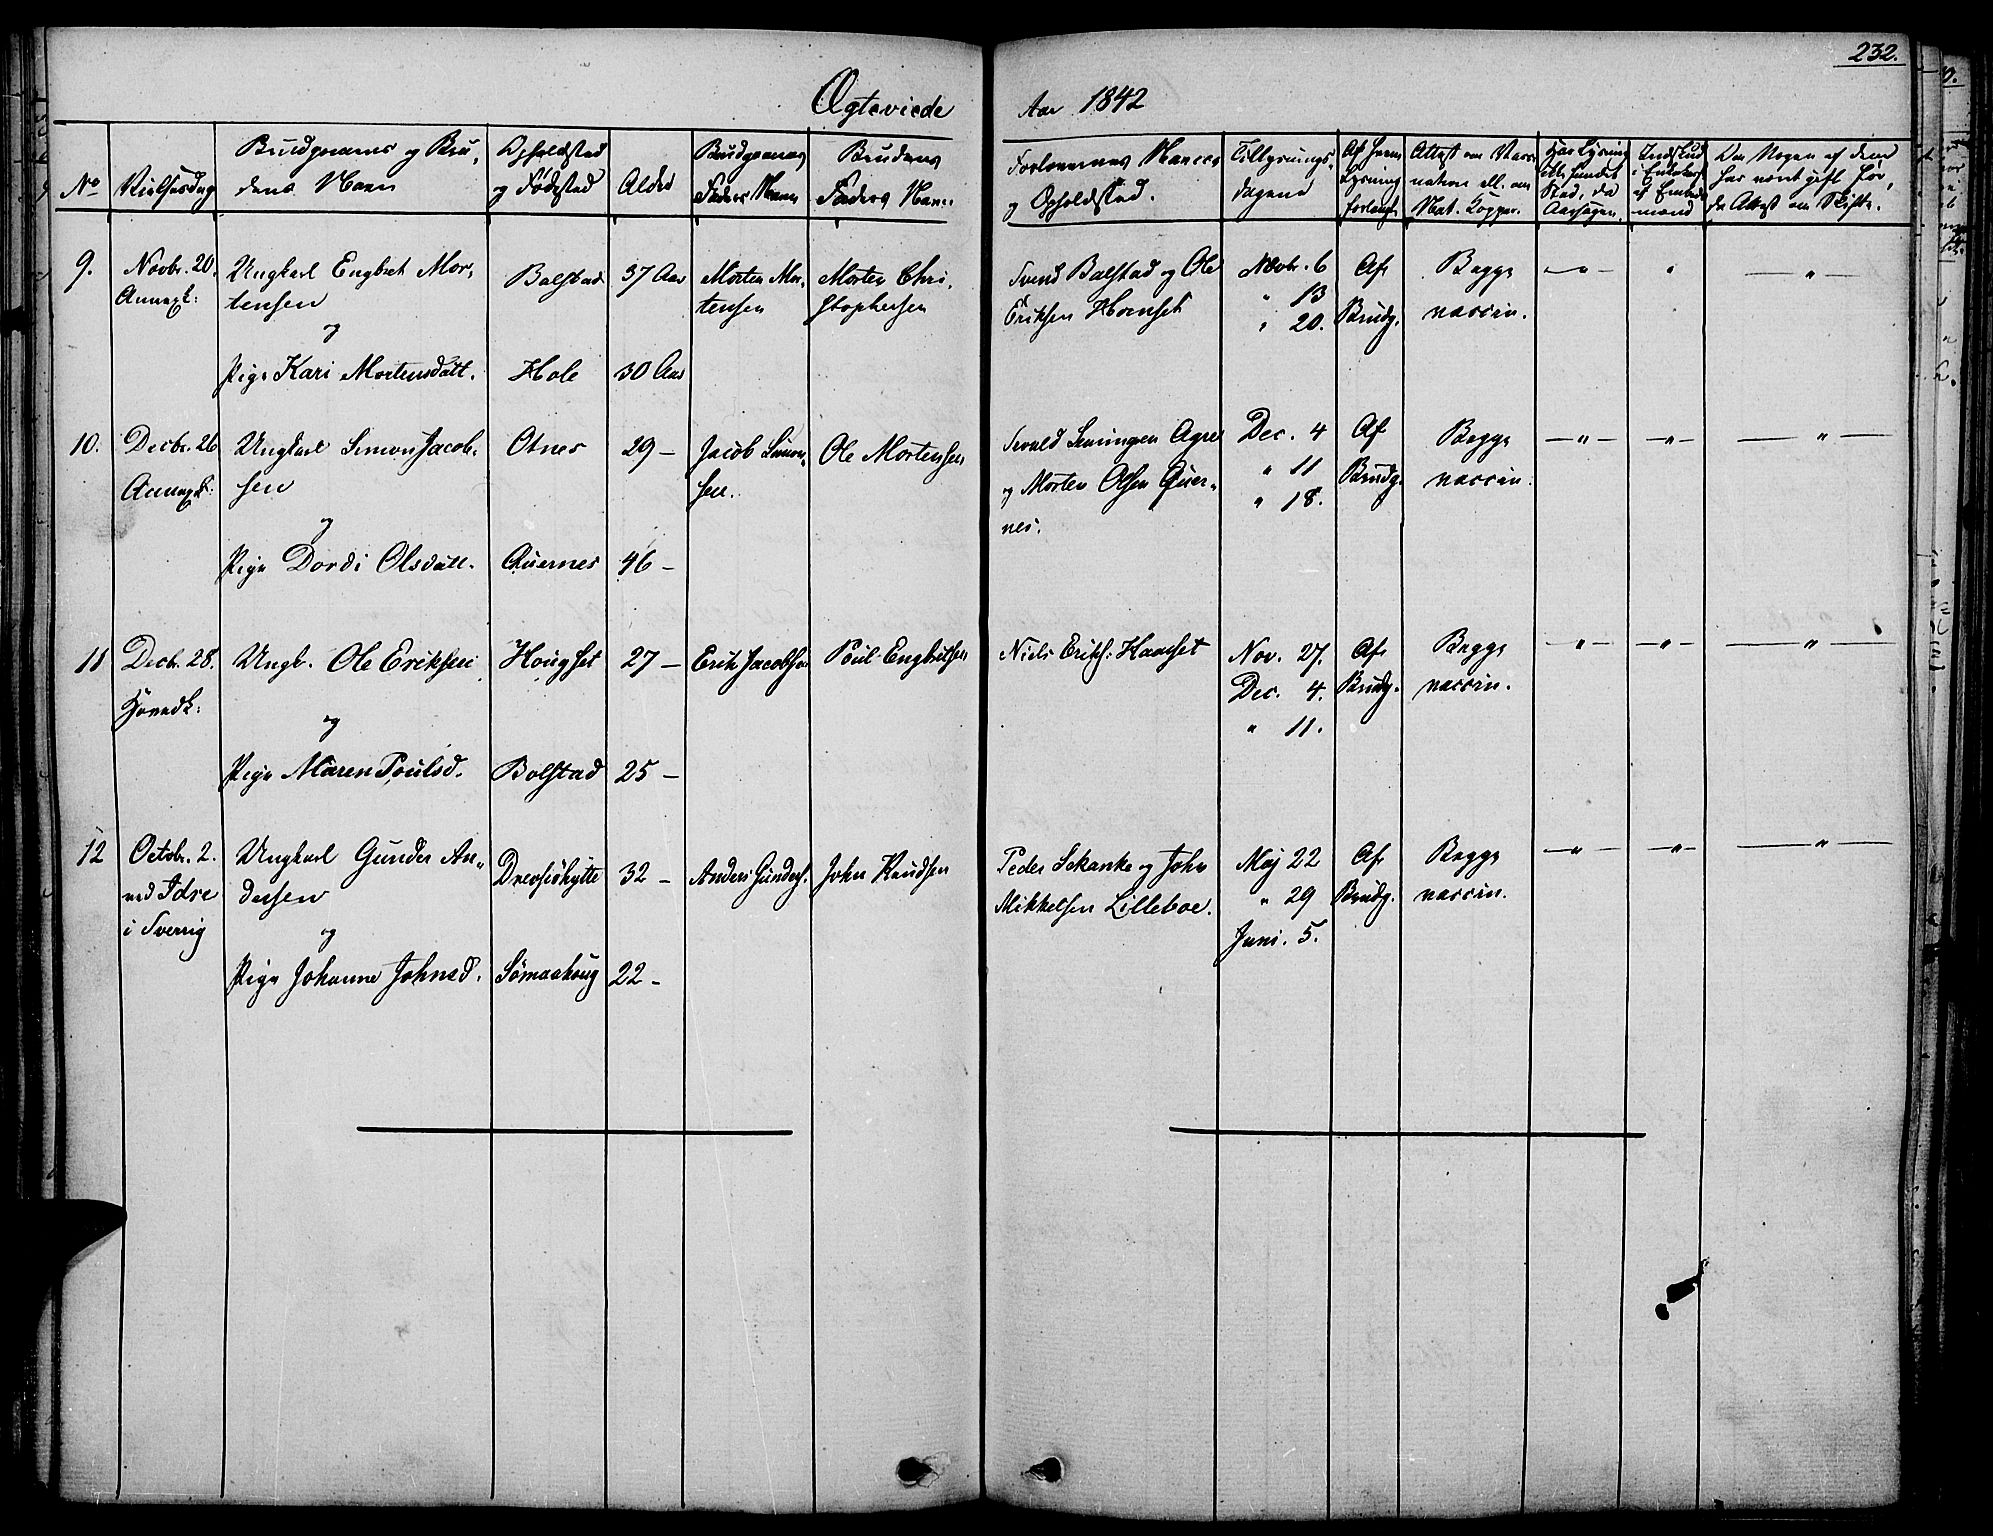 232.
Ægteviede Aar 1842
No
Vielsesdag
Brudgomens og Bru-
dens Navn
Opholdsted
og Fødested
Alder
Brudgomens
Faders Navn
Brudens
Faders Navn
Forlovernes Navne
og Opholdsted.
Tillysnings-
dagene
Af hvem
Lysning
forlangt
Attest om Vacci-
nation ell. om
Nat. Kopper.
Har Lysning
ell. fundet
Sted, da
Aarsagen.
Indskud
i Enkekas.
af Embeds-
mænd
Om Nogen af dem
har været gift før,
da Attest om Skifte.
9.
Novbr. 20.
Annexk:
Ungkarl Engbret Mor-
tensen
og
Pige Kari Mortensdatt.
Bolstad
Hole
37 Aar
30 Aar
Morten Mor-
tensen
Morten Chri-
stophersen
Svend Bolstad og Ole
Eriksen Hornset
Novbr. 6
" 13
" 20.
Af
Brudg.
Begge
vaccin.
—"—
"
—"—
10.
Decbr. 26
Annexk:
Ungkarl Simon Jacob-
sen
og
Pige Dordi Olsdatt.
Otnes
Quernes
29 —
46 —
Jacob Simon-
sen.
Ole Mortensen
Agre
og Morten Olsen Quer-
nes.
Dec. 4
" 11
" 18.
Af
Brudg.
Begge
vaccin.
—"—
—"—
—"—
11
Decbr. 28.
Hovedk:
Ungk. Ole Eriksen
og
Pige Maren Poulsd.
Hougset
Bolstad
27 —
25 —
Erik Jacobsen
Poul Engbretsen
Niels Eriks: Haarset
Nov. 27.
Dec. 4.
" 11.
Af
Brudg.
Begge
vaccin.
—"—
—"—
—"—
12
Octobr. 2.
ved Idre
i Sverrig
Ungkarl Gunder An-
dersen
og
Pige Johanne Johnsd.
Drevsiøhytte
Sømaahoug
32 —
22 —
Anders Gunders.
John Knudsen
Peder Schanke og John
Mikkelsen Lilleboe.
Maj 22
" 29
Juni. 5.
Af
Brudg.
Begge
vaccin.
—"—
—"—
—"—